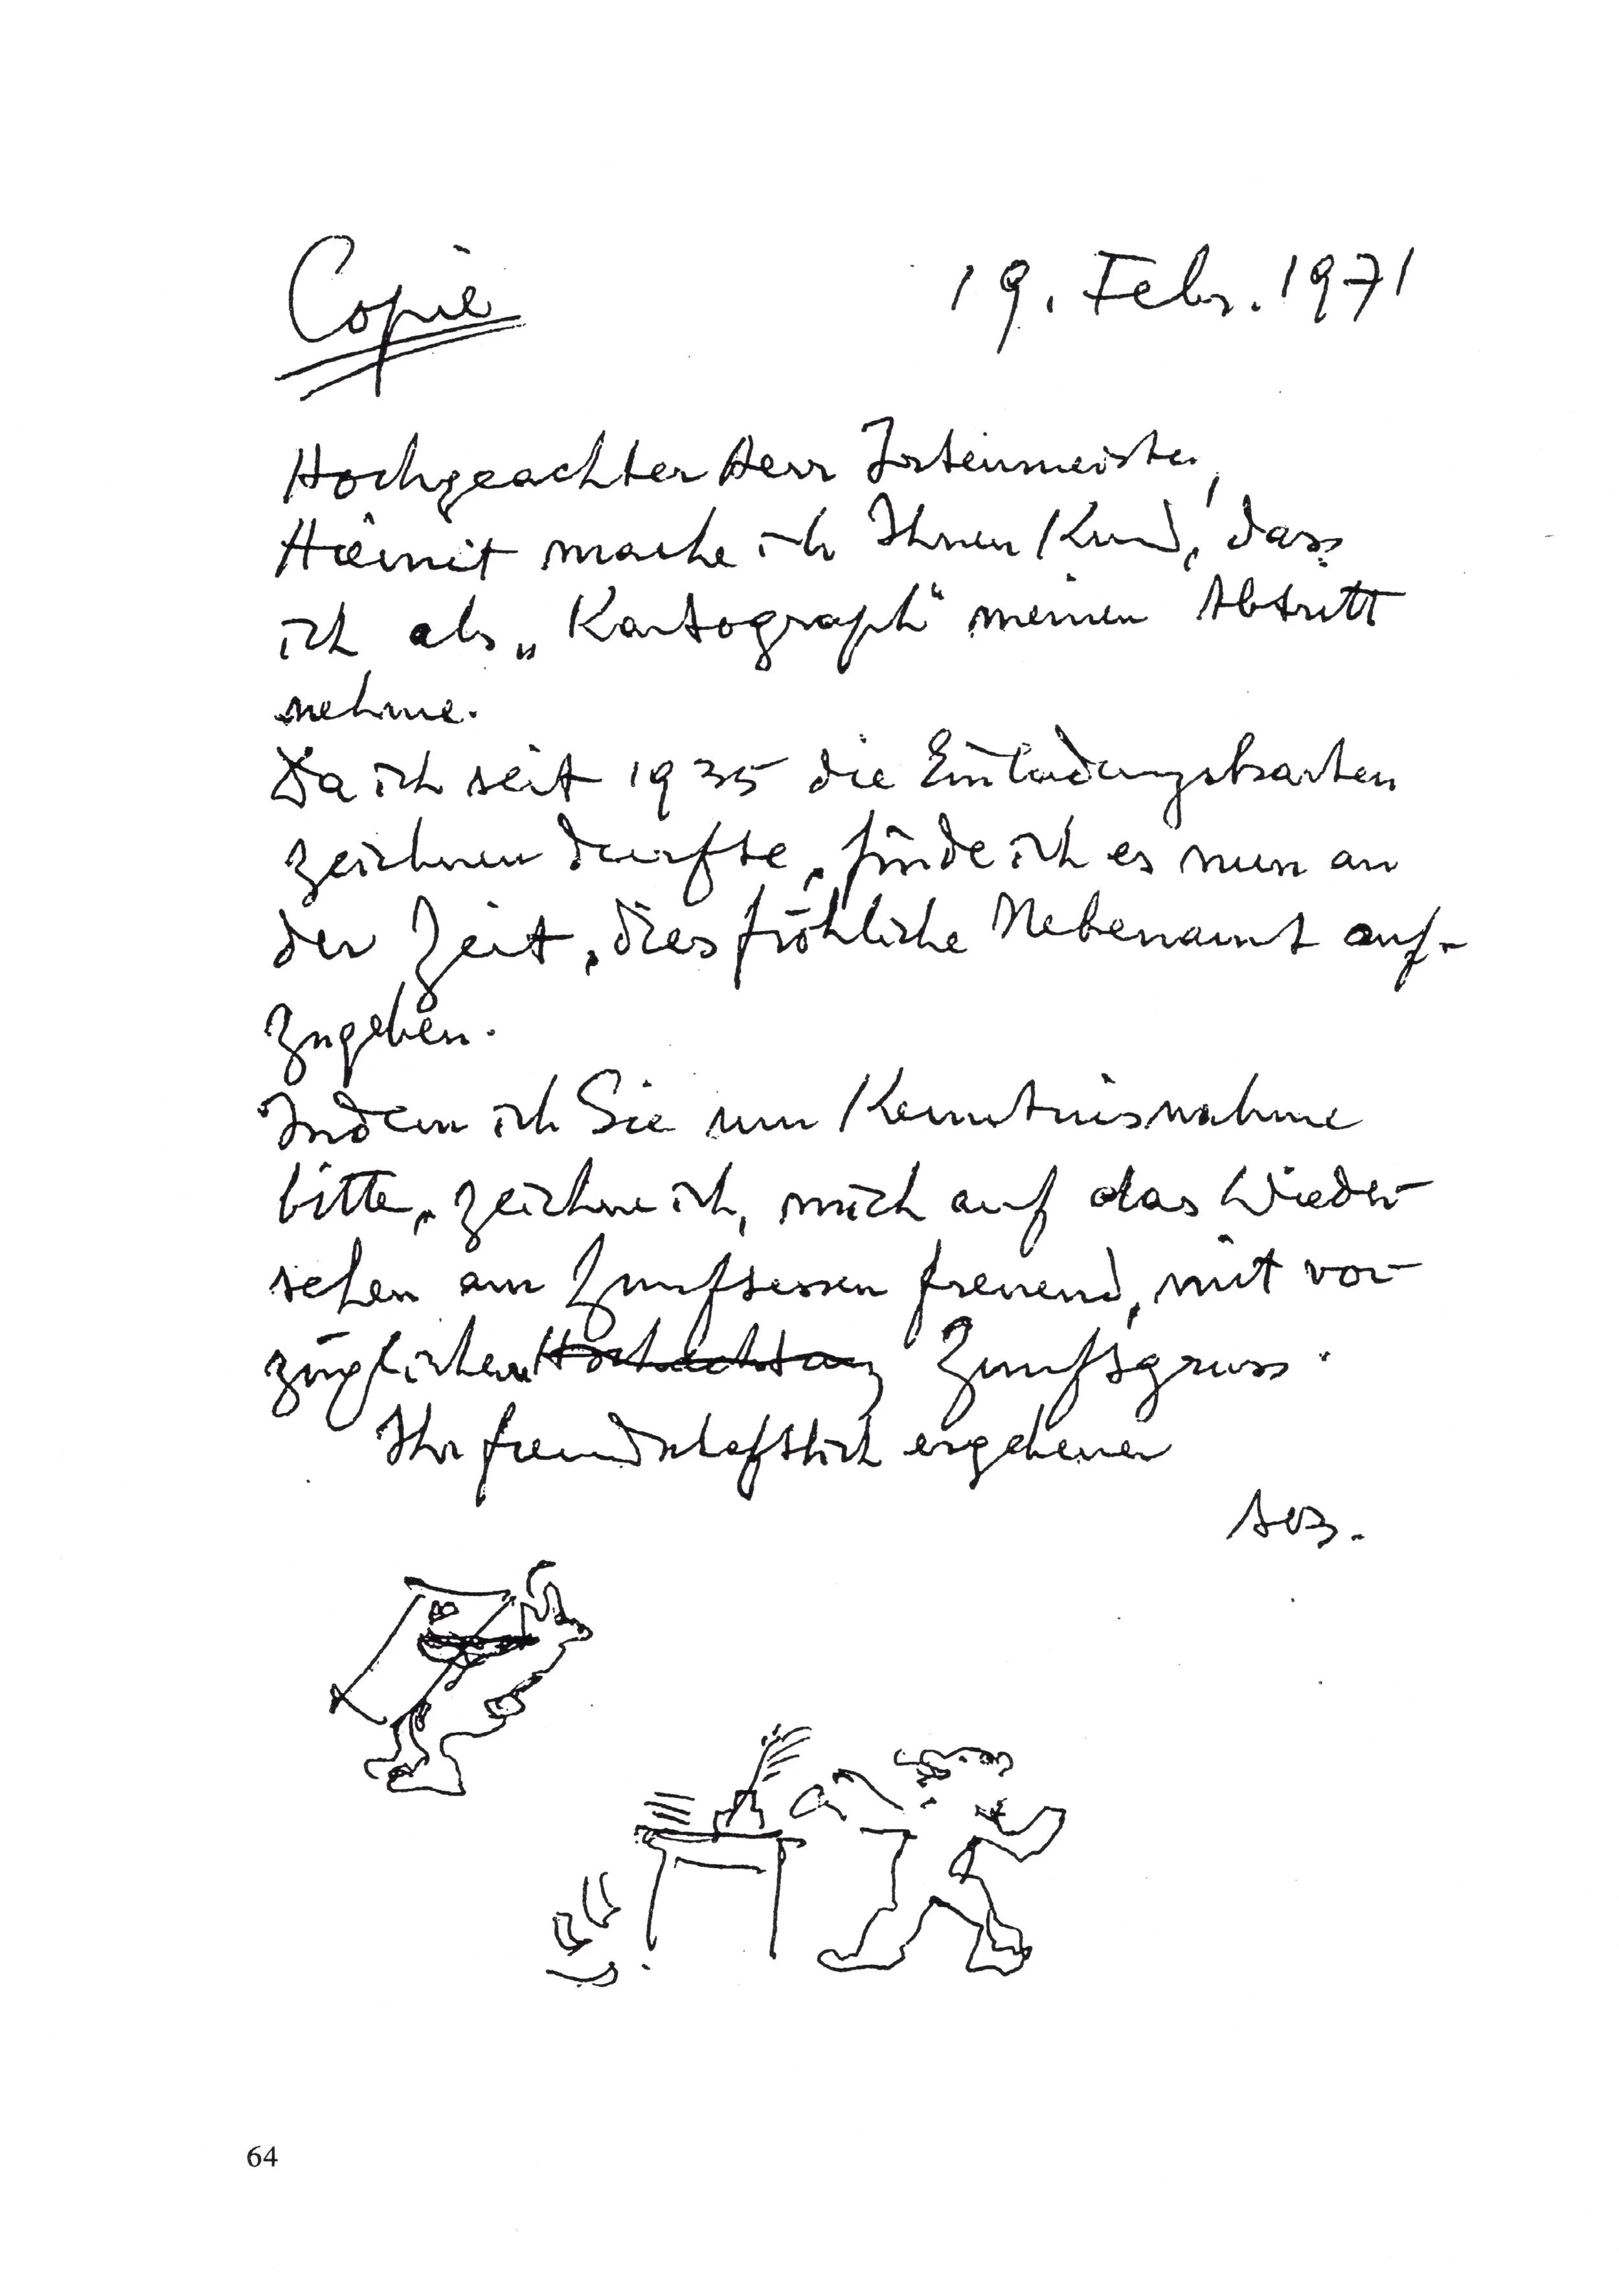 Copie
19. Febr. 1971
Hochgeachter Herr Irtenmeister,
Hiemit mache ich Ihnen Kund, dass
ich als „Kartograph“ meinen Abtritt
nehme.
Da ich seit 1935 die Einladungskarten
zeichnen durfte, finde ich es nun an
der Zeit, dies fröhliche Nebenamt auf-
zugeben.
Indem ich Sie um Kenntnisnahme
bitte, zeichne ich, mich auf das Wieder-
sehen am Zunftessen freuend, mit vor-
züglichem Hochachtung Zunftgruss.
Ihr freundschaftlich ergebener
64